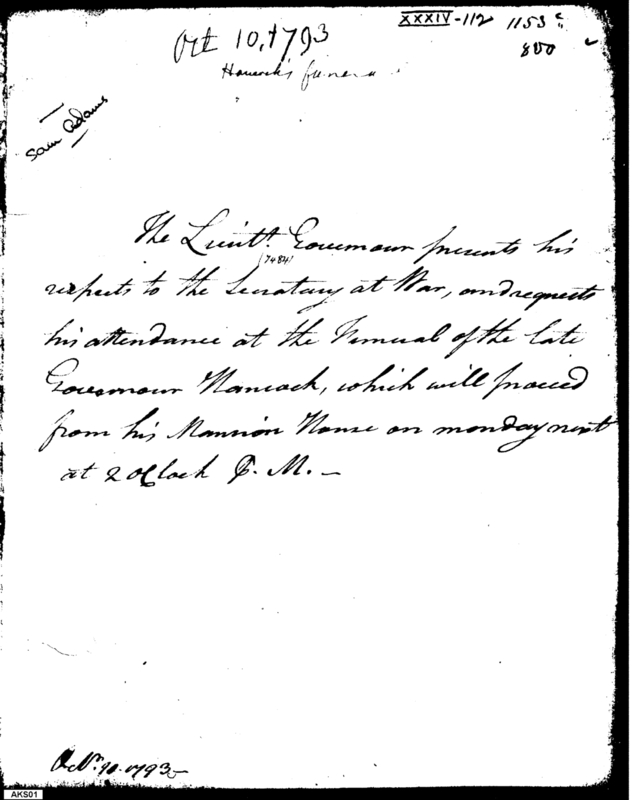 XXXIV-112 1153
800
Oct 10, 1793
Hancock's funera
Sam Adams
The Lieut. Governour presents his
(7484)
respects to the Secretary at War, and requests
his attendance at the Funeral of the late
Governour Hancock, which will proceed
from his Mansion House on monday next
at 2 oClock P. M. —
10. 1793
AKS01